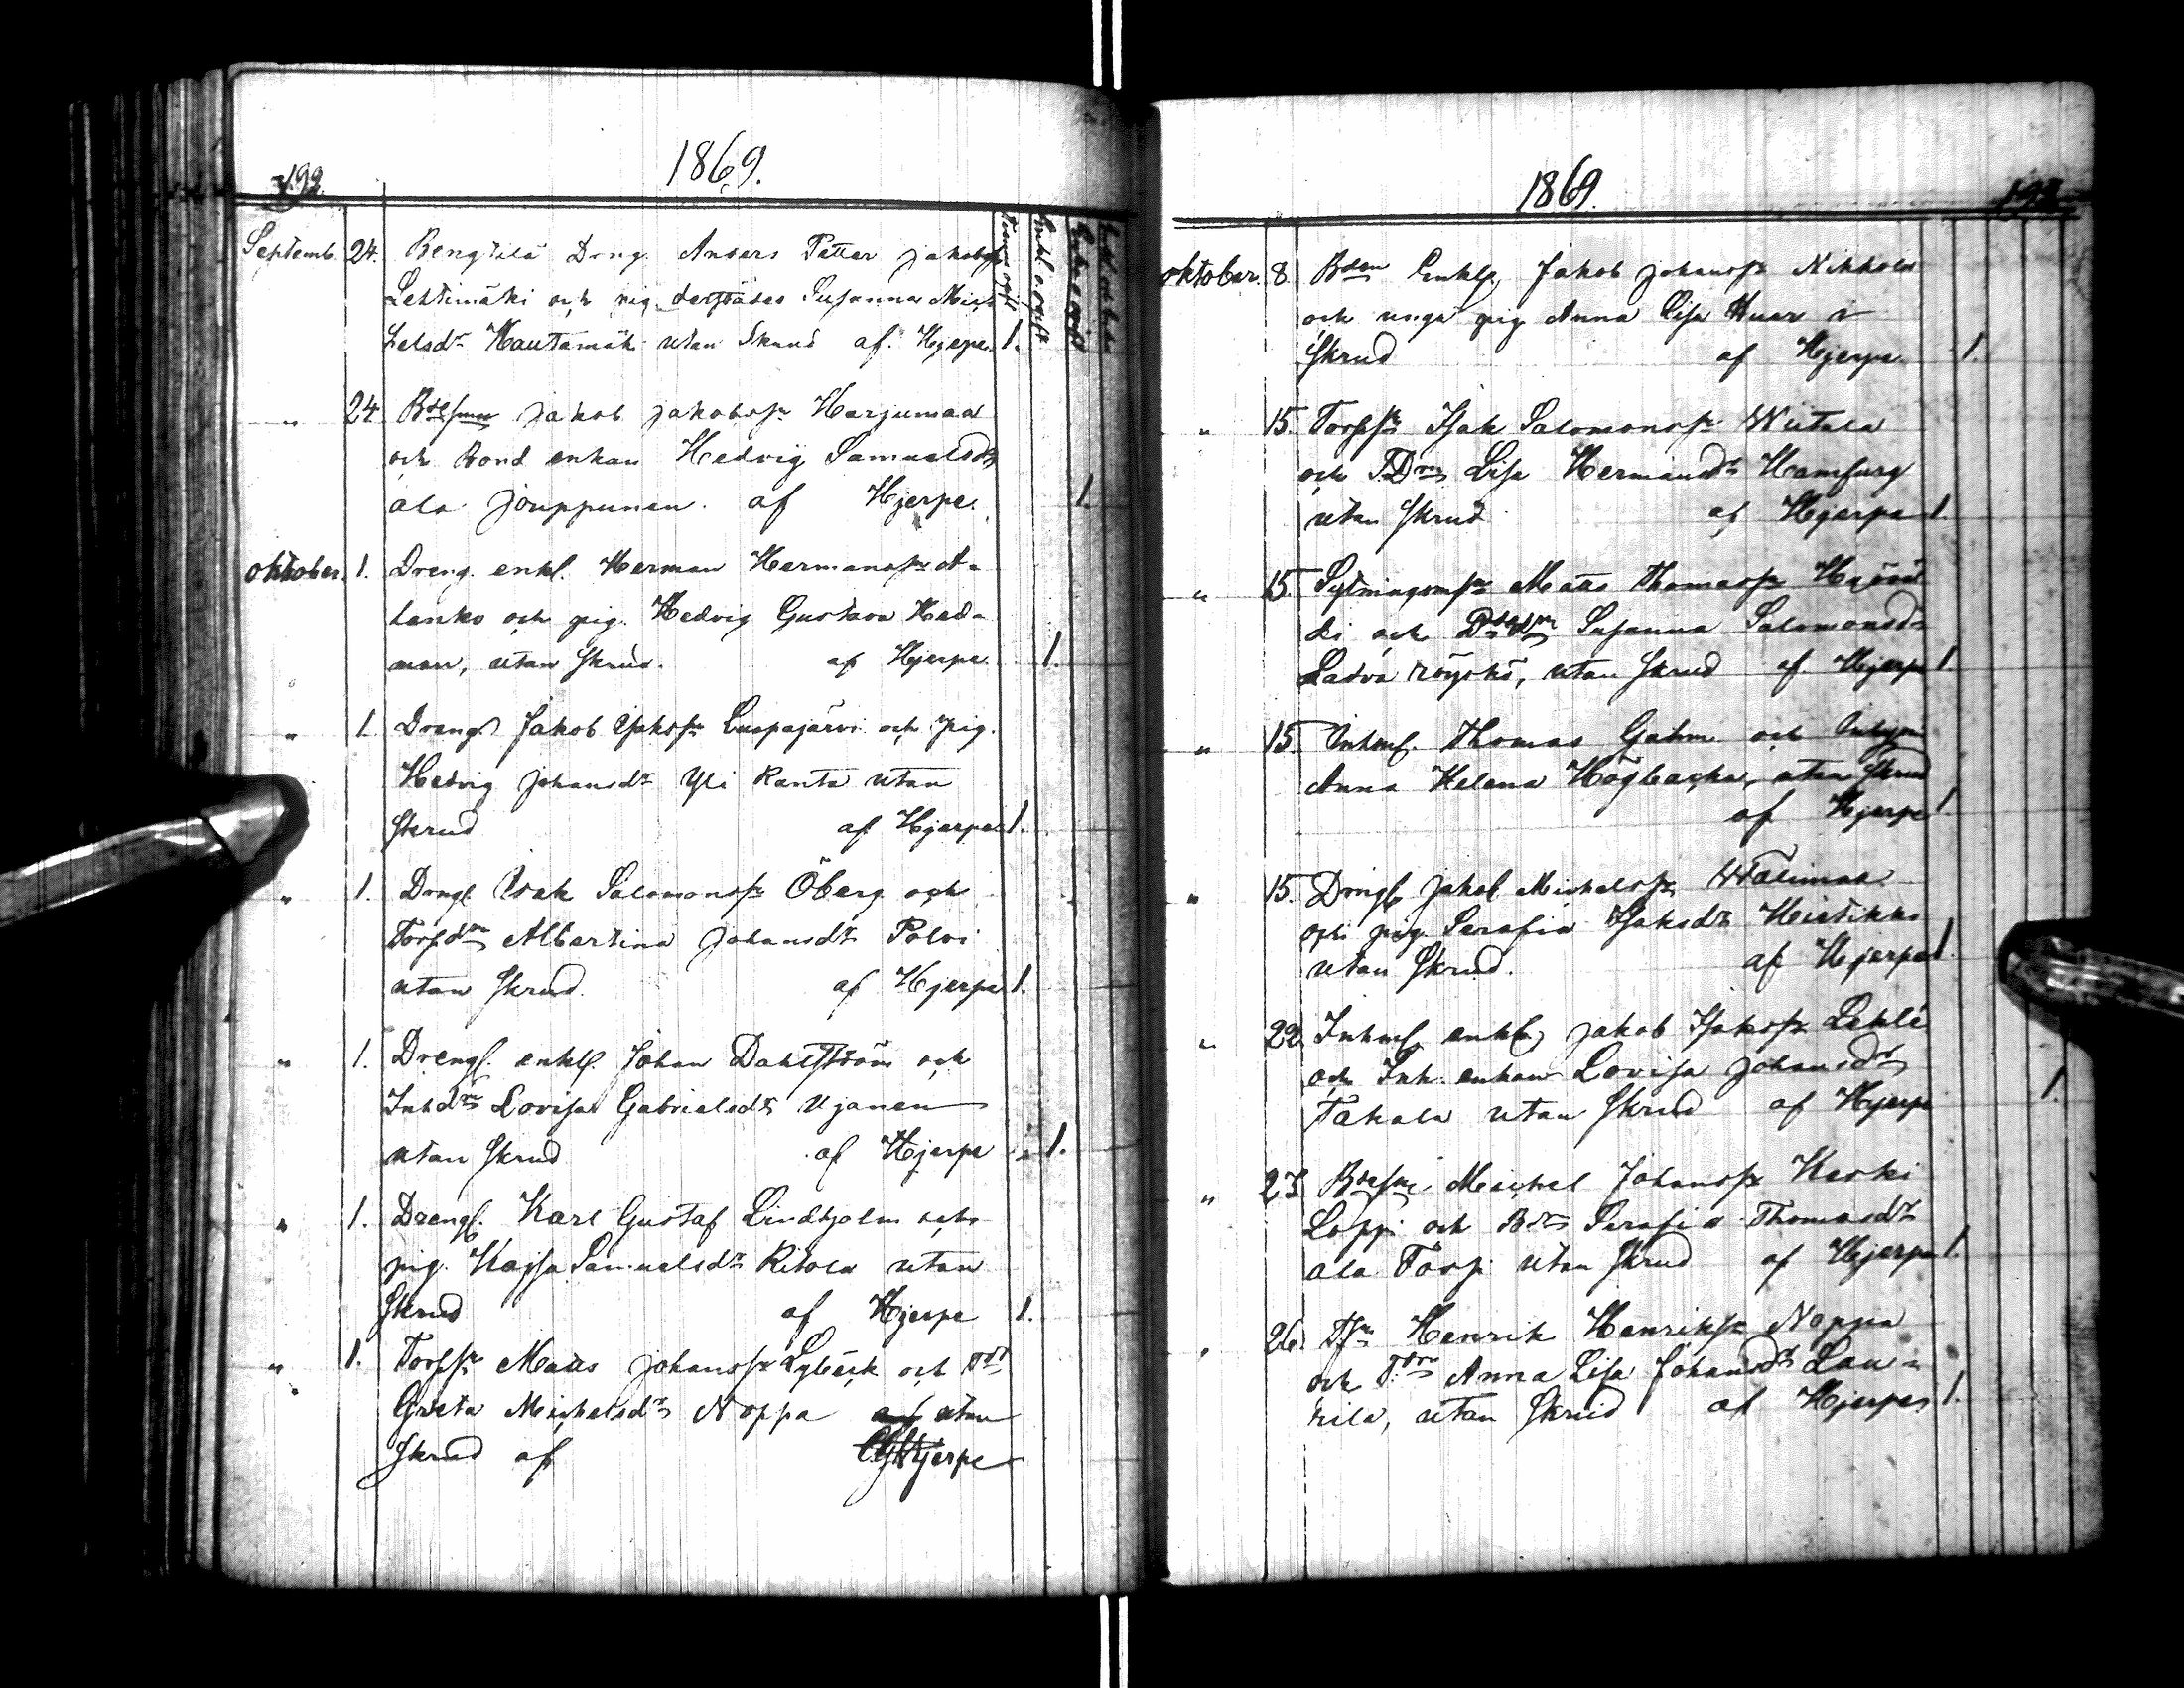 192.
1869.
Septemb. 24. Bengtilä Dreng Anders Petter Jakobss
Lehtimäki och pig. Susanna Mic
helsdr Hautamäk utan Skrud af. Hjerpe. 1.
" 24. Jakob Jakobss Harjumaa
och Bond enkan Hedvig Samuelsdr
ala Jouppunen. af Hjerpe. 1.
oktober. 1. Dreng. enkl. Herman Hermanss A-
lanko och pig. Hedvig Gustava Hed-
man, utan Skrud. af Hjerpe. 1.
" 1 Drengs Jakob Luopajärvi och pig.
Hedvig Johansdr Yli Ranta utan
Skrud af Hjerpe 1.
" 1. Drengs. Isak Salomonss Öberg och
Torpdrn Albertina Johansdr Polvi
utan Skrud. af Hjerpe 1.
" 1. Drengs. enkl. Johan Dahlström och
Inhdrn Lovisa Gabrielsdr Ujanen
utan Skrud af Hjerpe 1.
" 1. Drengs. Karl Gustaf Lindholm och
pig. Kajsa Samuelsdr Ritola utan
Skrud af Hjerpe 1.
" 1. Torpsn Matts Johanss Lybäck och
Greta Michelsdr Noppa utan
Skrud af Hjerpe
1869.
oktober. 8. Enkl. Jakob Johanss Nikkola
och unga pig Anna Lisa Huar
Skrud af Hjerpe. 1.
" 15. Torpsn Isak Salomonss Wiitala
och T.Drn Lisa Hermansdr Hamfurg
utan Skrud af Hjerpe 1.
" 15. Sytningsmsn Matts Thomass
och Susanna Salomonsdr
Ladva röyskö, utan Skrud af Hjerpe 1.
" 15. Inhms. Thomas Gahm och
Anna Helena Högbacka, utan Skrud
af Hjerpe 1.
" 15. Drengs Jakob Michelss Wälimaa
och pig. Serafia Isaksdr Hietikko
utan Skrud. af Hjerpe 1.
" 22. Inhms enkl. Jakob Isakss
och Inh. enkan Lovisa Johansdr
Takala utan Skrud af Hjerpe 1.
" 23. Michel Johanss Keski
Loppi och Bdrn Serafia Thomasdr
ala Torp utan Skrud af Hjerpe 1.
" 26. Tsn Henrik Henrikss Noppa
och T.drn Anna Lisa Johansdr Lau-
rila, utan Skrud af Hjerpe 1.